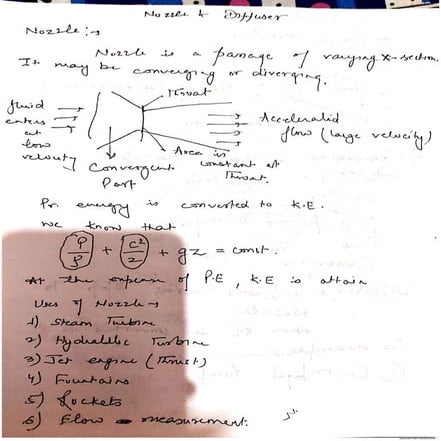 Nozzle & Diffuser
Nozzle :→
Nozzle is a passage of varying X-section.
It may be converging or diverging.
Throat
fluid enters at low velocity
Accelerated flow (large velocity)
Area is constant at Throat.
Convergent Part
Pr. energy is converted to K.E.
we know that
P/ρ + C²/2 + gz = const.
At the expense of P.E, K.E is attain
Uses of Nozzle →
1) Steam Turbine
2) Hydraulic Turbine
3) Jet engine (Thrust)
4) Fountains
5) Rockets
6) Flow measurement.